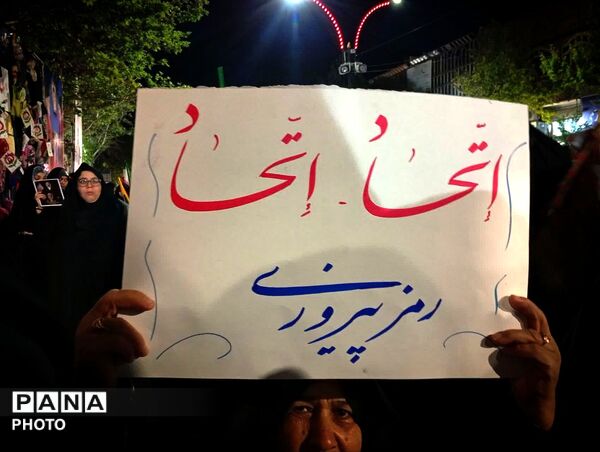 اِتّحاد، اِتّحاد
رمز پیروزی
PANA
PHOTO